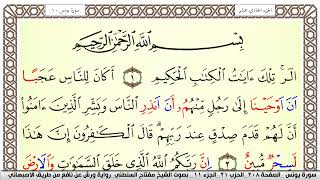 الجزء الحادي عشر
سورة يونس ١٠
بِسْمِ اللَّهِ الرَّحْمَٰنِ الرَّحِيمِ
الٓرۚ تِلْكَ ءَايَٰتُ الْكِتَٰبِ الْحَكِيمِ ١ أَكَانَ لِلنَّاسِ عَجَبًا
أَنْ أَوْحَيْنَا إِلَىٰ رَجُلٍ مِّنْهُمْ أَنْ أَنذِرِ النَّاسَ وَبَشِّرِ الَّذِينَ ءَامَنُوا
أَنَّ لَهُمْ قَدَمَ صِدْقٍ عِندَ رَبِّهِمْ قَالَ الْكَٰفِرُونَ إِنَّ هَٰذَا
لَسِحْرٌ مُّبِينٌ ٢ إِنَّ رَبَّكُمُ اللَّهُ الَّذِي خَلَقَ السَّمَٰوَٰتِ وَالْأَرْضَ
سورة يونس الصفحة ٢٠٨ الحزب ٢١ الجزء ١١ بصوت الشيخ مفتاح السلطني رواية ورش عن نافع من طريق الاصبهاني